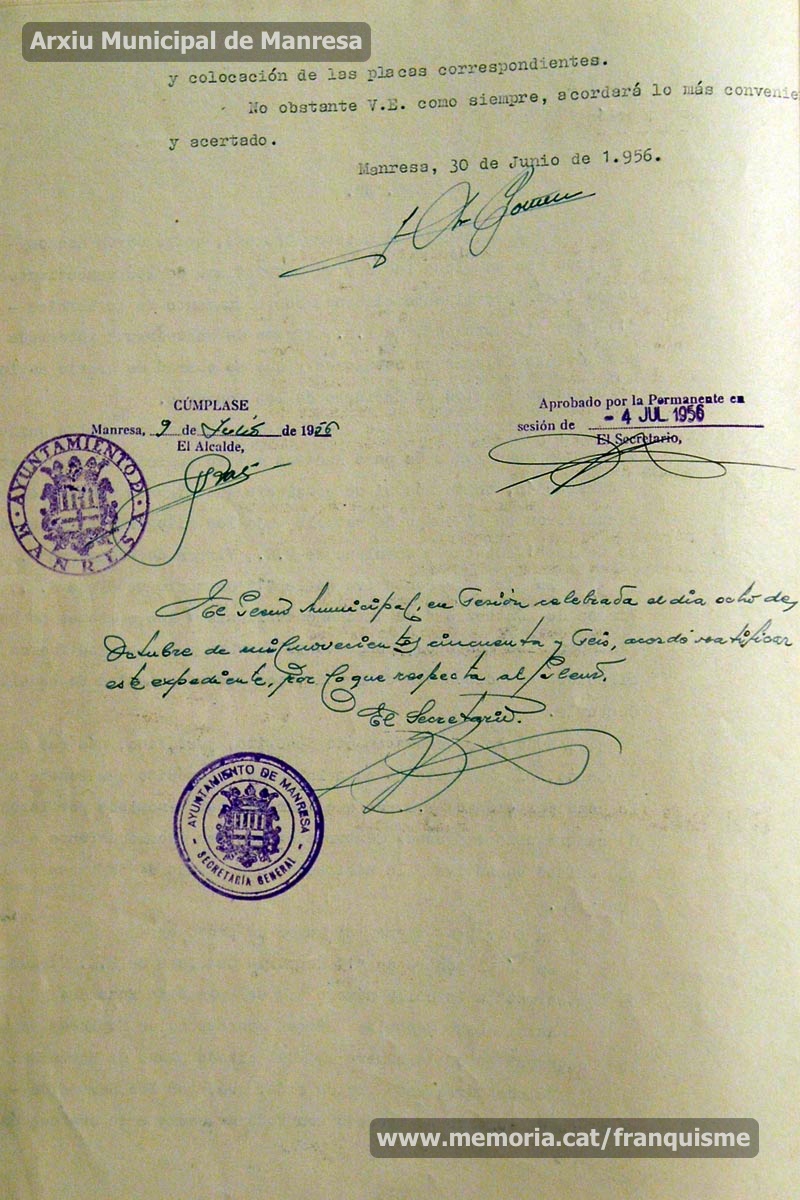 Arxiu Municipal de Manresa
y colocación de las placas correspondientes.
No obstante V.E. como siempre, acordará lo más convenie
y acertado.
Manresa, 30 de Junio de 1.956.
CÚMPLASE
Manresa, 9 de Julio de 1956
El Alcalde,
Aprobado por la Permanente en
sesión de - 4 JUL 1956
El Secretario,
AYUNTAMIENTO D
MANRESA
El Pleno Municipal, en Sesión celebrada el dia ocho de
Octubre de mil novecientos cincuenta y Seis, acordó ratificar
este expediente, por lo que respecta al Pleno.
El Secretario.
AYUNTAMIENTO DE MANRESA
- SECRETARÍA GENERAL -
www.memoria.cat/franquisme